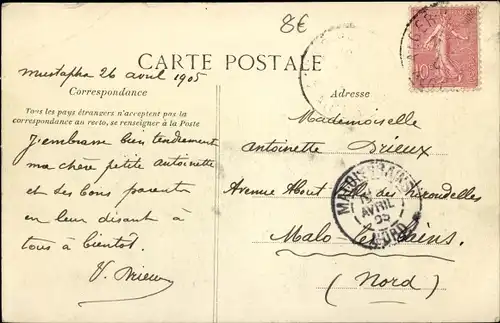 8€
CARTE POSTALE
Mustapha 26 avril 1905
Correspondance
Tous les pays étrangers n'acceptent pas la
correspondance au recto, se renseigner à la Poste
J'embrasse bien tendrement
ma chère petite Antoinette
et ses bons parents
en leur disant à
tous à bientôt.
V. Brieux
Adresse
Mademoiselle
Antoinette Brieux
Avenue About Villa des Hirondelles
Malo-les-Bains.
(Nord)
MALO-LES-BAINS
AVRIL
05
NORD
10